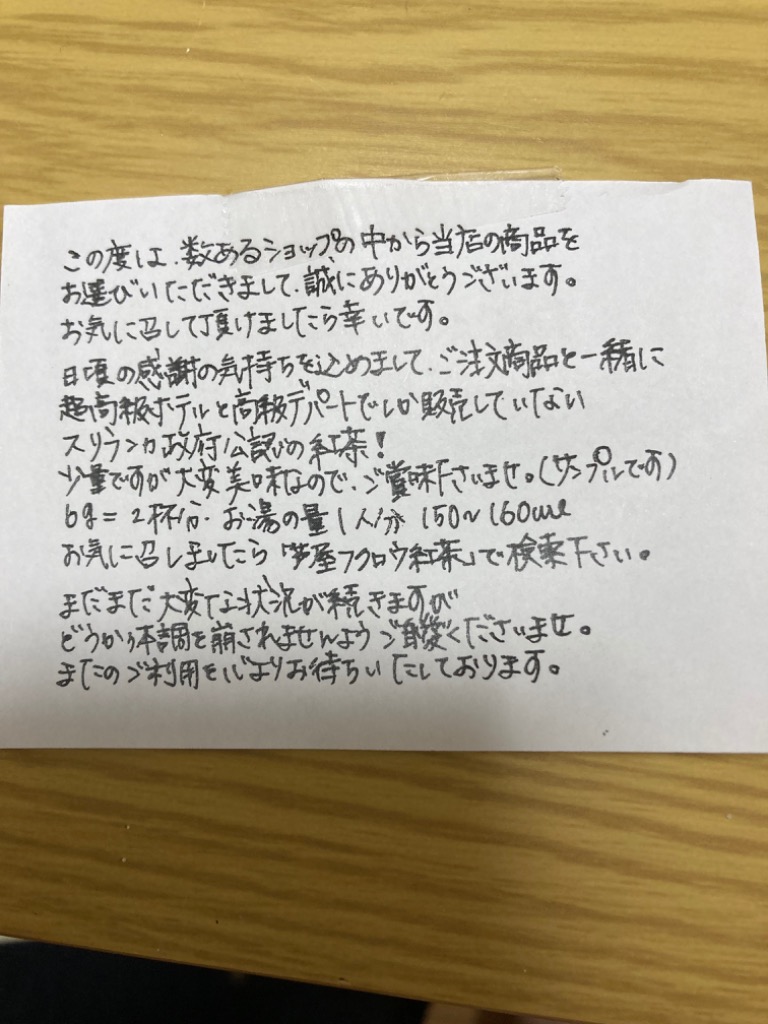 この度は、数あるショップの中から当店の商品を
お選びいただきまして、誠にありがとうございます。
お気に召して頂けましたら幸いです。
日頃の感謝の気持ちを込めまして、ご注文商品と一緒に
超高級ホテルと高級デパートでしか販売していない
スリランカ政府公認の紅茶！
少量ですが大変美味なので、ご賞味下さいませ。(サンプルです)
6g＝2杯分、お湯の量1人分 150~160ml
お気に召しましたら「芦屋フクロウ紅茶」で検索下さい。
まだまだ大変な状況が続きますが
どうかお体調を崩されませんようご自愛くださいませ。
またのご利用を心よりお待ちいたしております。